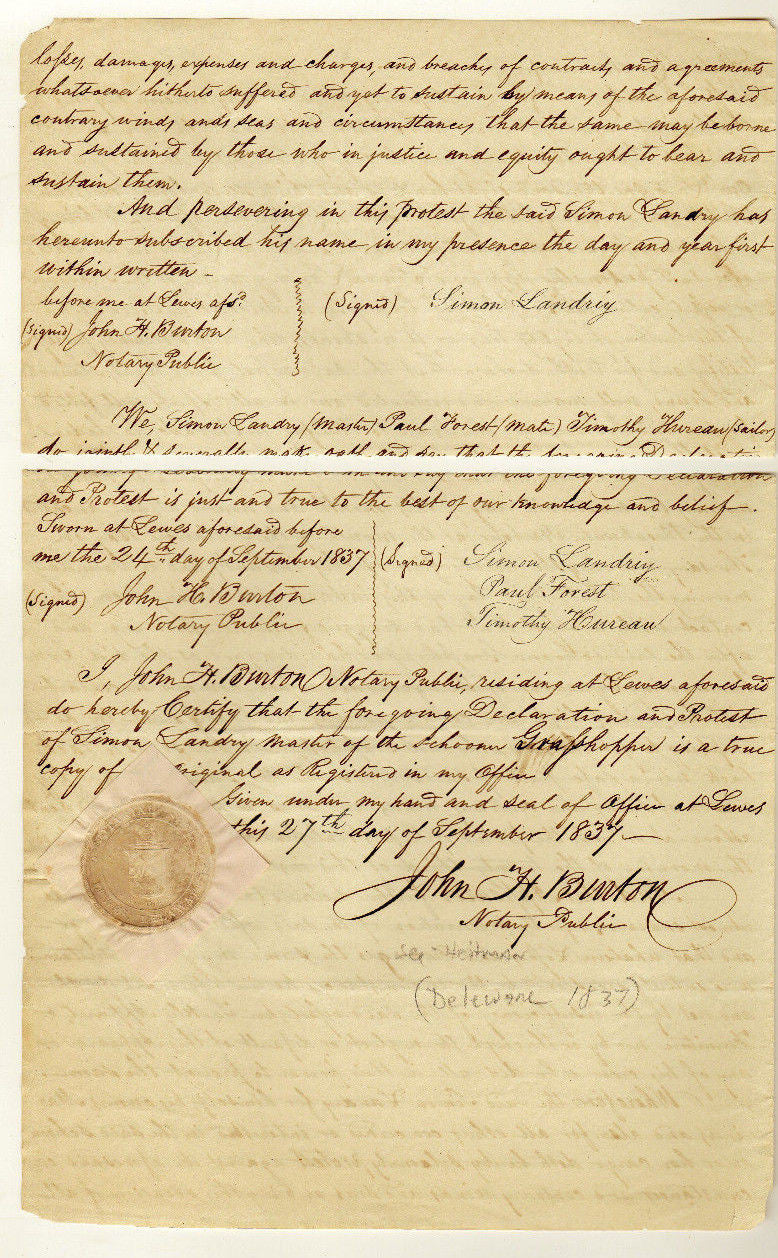 losses, damages, expenses and charges, and breaches of contracts and agreements
whatsoever hitherto suffered and yet to sustain by means of the aforesaid
contrary winds and seas and circumstances that the same may be borne
and sustained by those who in justice and equity ought to bear and
sustain them.
And persevering in this Protest the said Simon Landry has
hereunto subscribed his name in my presence the day and year first
within written -
before me at Lewes afsd.
(Signed) Simon Landriy
(Signed) John H. Burton
Notary Public
We, Simon Landry (Master) Paul Forest (Mate) Timothy Hureau (Sailor)
do jointly & severally make oath and say that the foregoing Declaration
and Protest is just and true to the best of our knowledge and belief.
Sworn at Lewes aforesaid before
me the 24th day of September 1837
(Signed) John H. Burton
Notary Public
(Signed) Simon Landriy
Paul Forest
Timothy Hureau
I, John H. Burton, Notary Public, residing at Lewes aforesaid
do hereby Certify that the foregoing Declaration and Protest
of Simon Landry Master of the Schooner Grasshopper is a true
copy of original as Registered in my Office
Given under my hand and seal of Office at Lewes
this 27th day of September 1837
John H. Burton
Notary Public
(Deleware 1837)